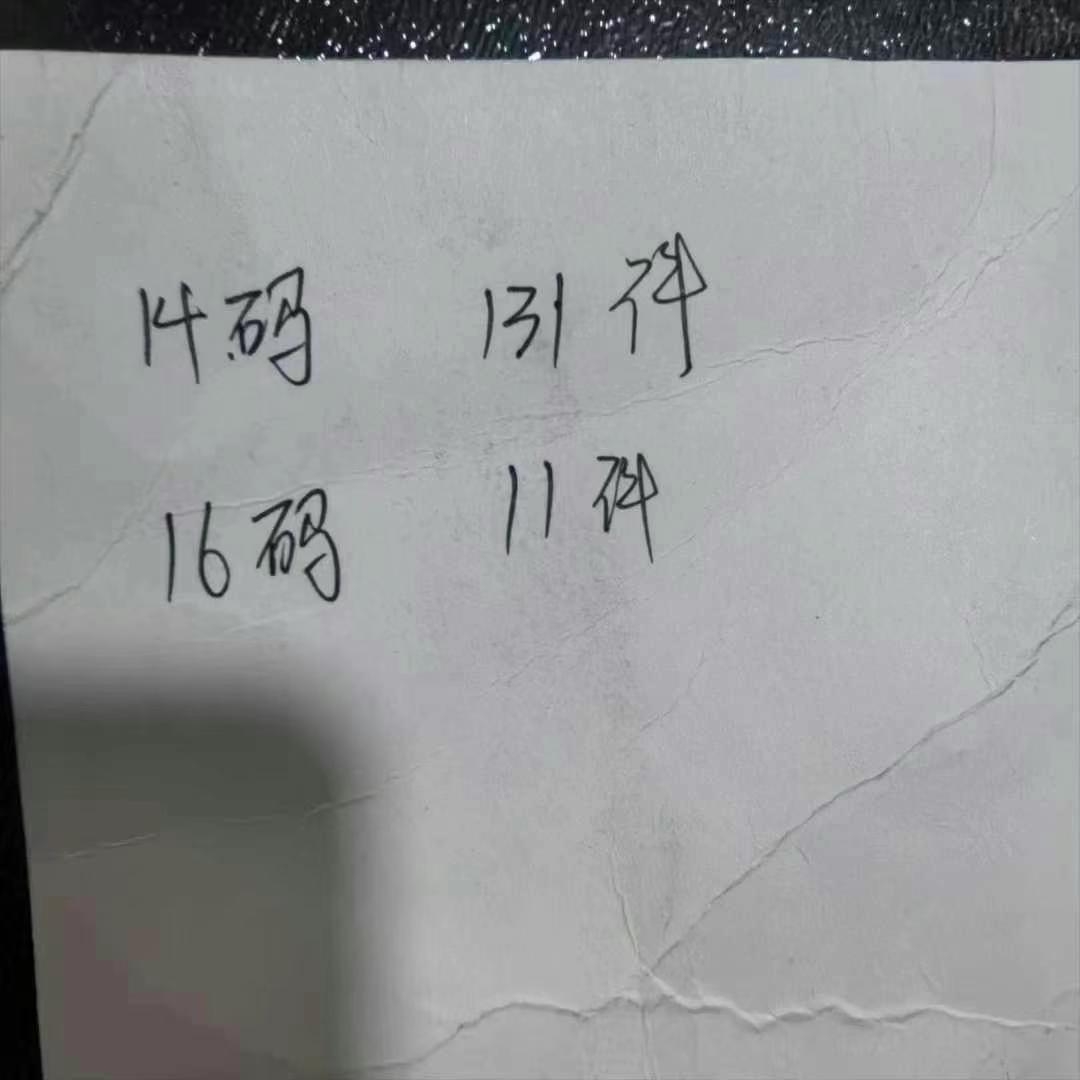 14码 131件
16码 11件